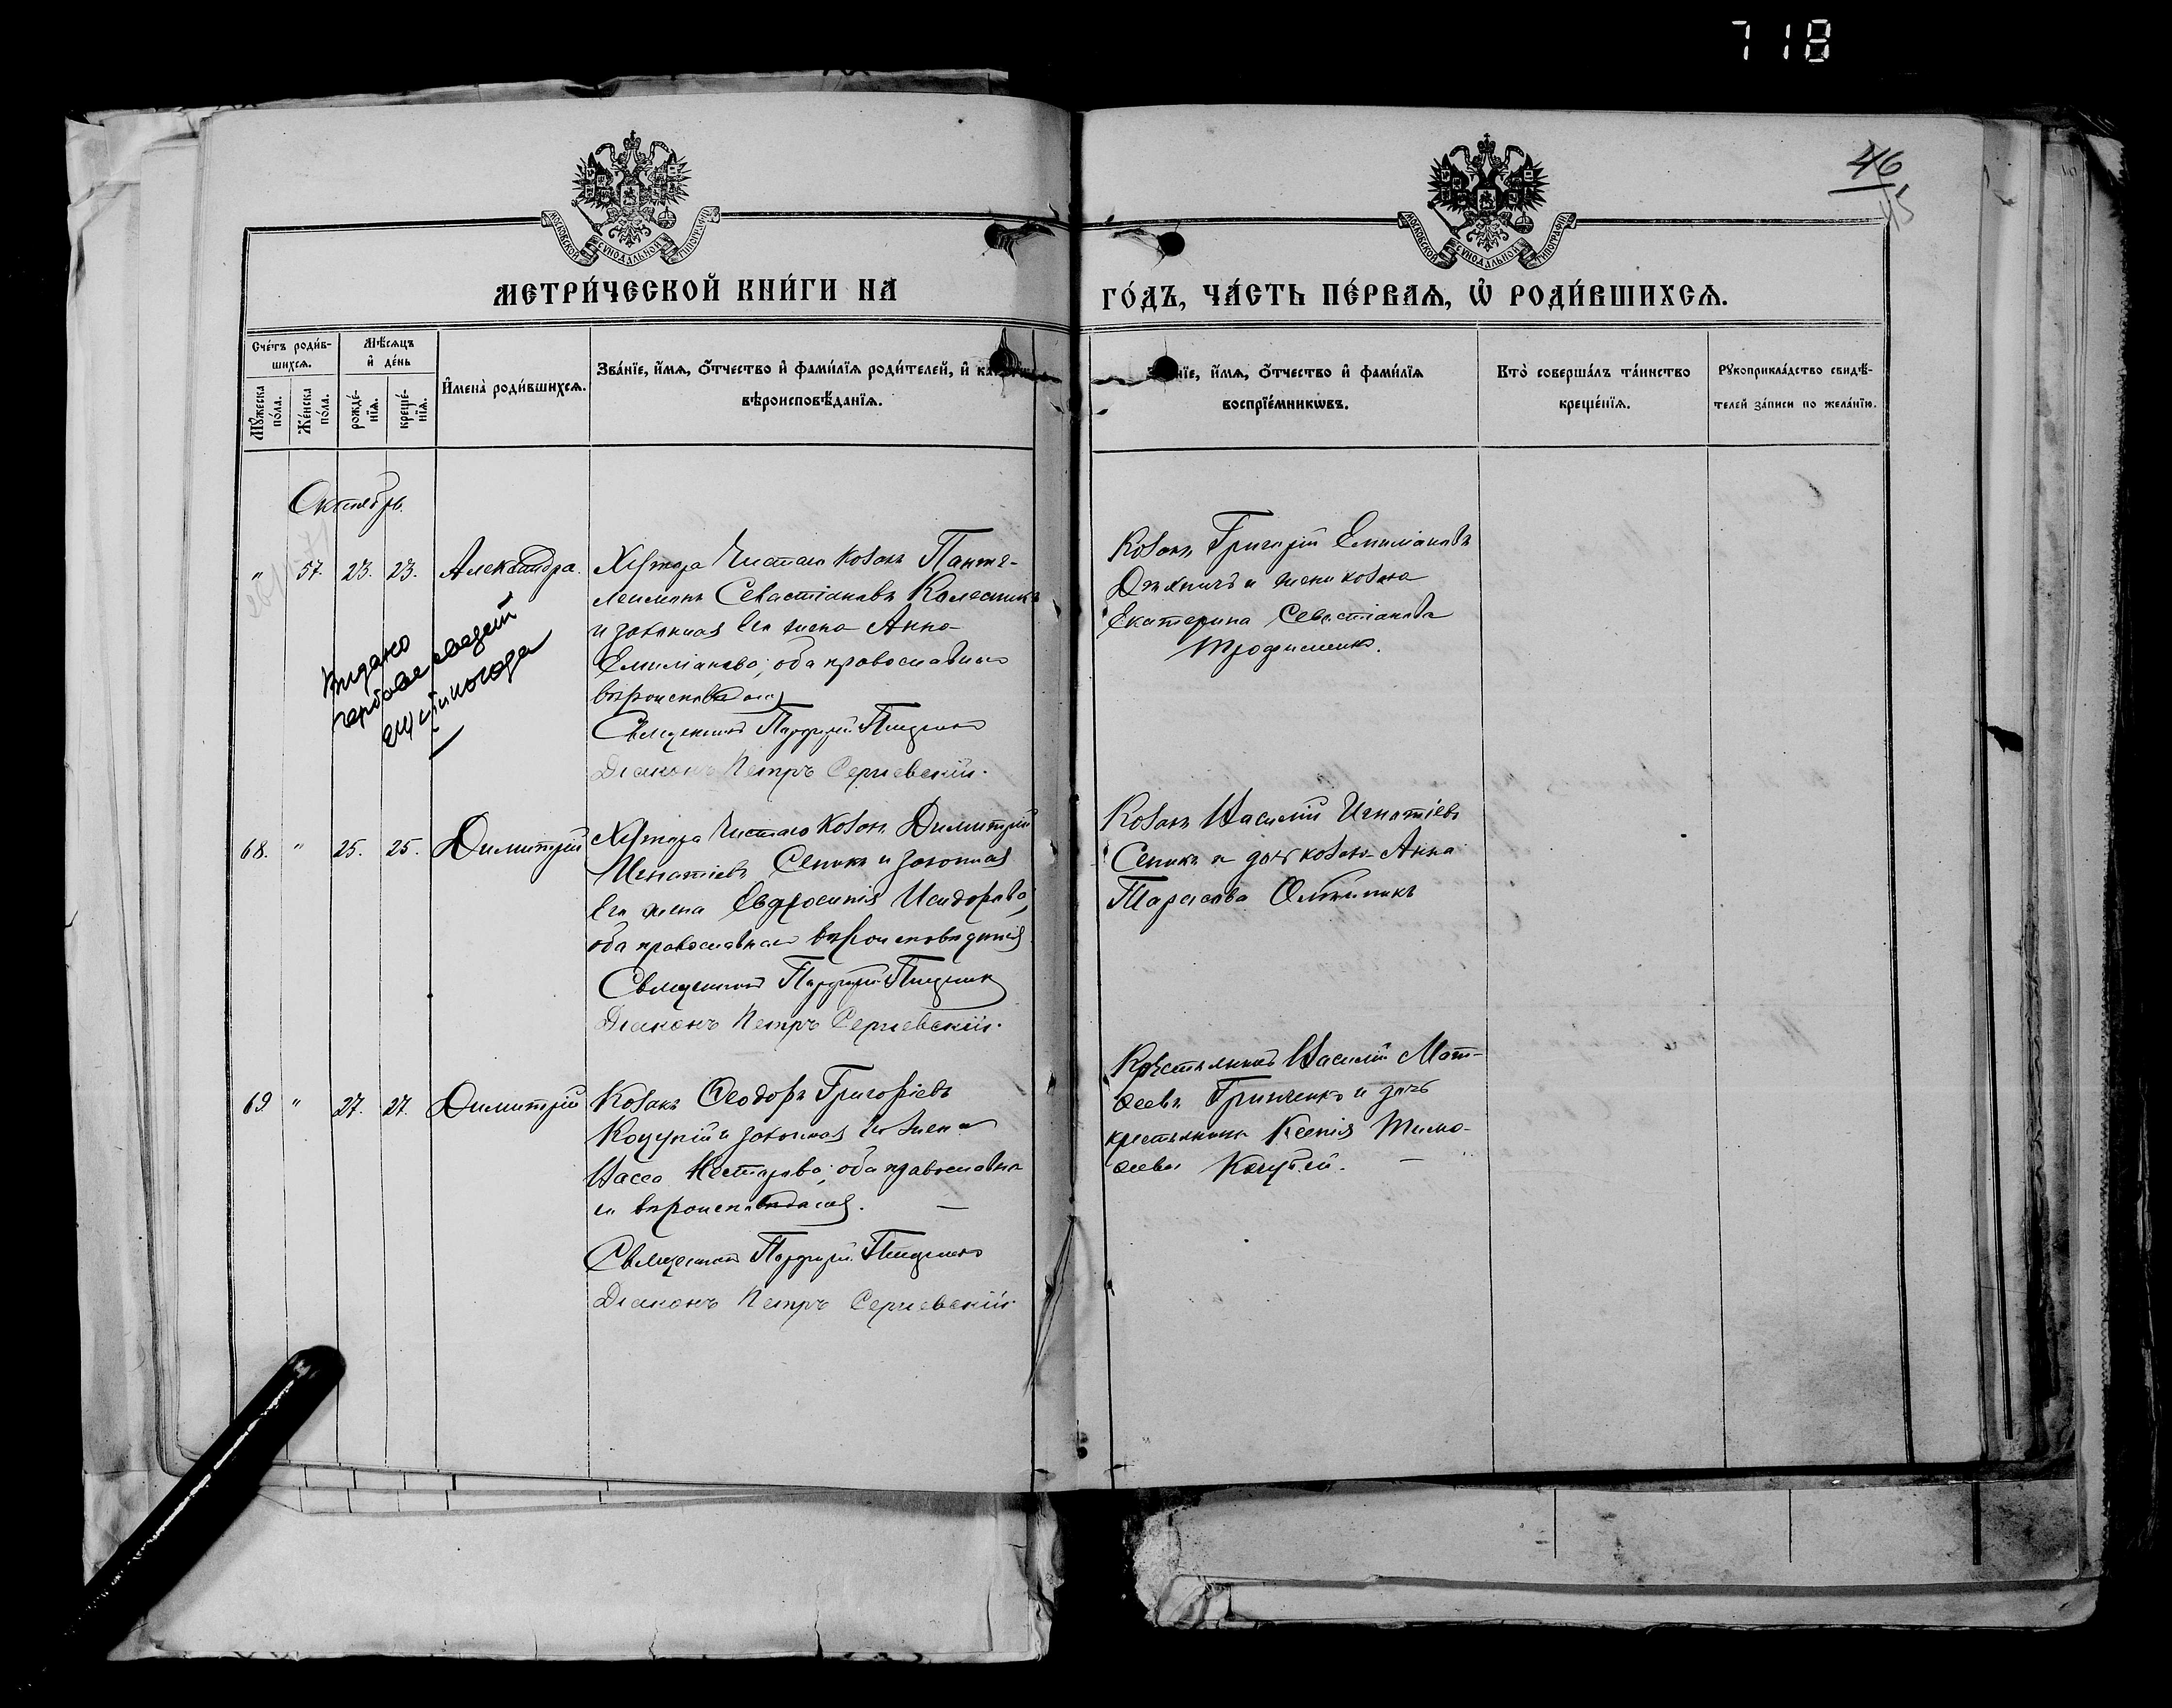 718
46
45
МОСКОВСКОЙ СУНОДАЛЬНОЙ ТИПОГРАФІИ
МОСКОВСКОЙ СУНОДАЛЬНОЙ ТИПОГРАФІИ
МЕТРИ́ЧЕСКОЙ КНИ́ГИ НА
ГО́ДЪ, ЧА́СТЬ ПЕ́РВАѦ, Ѡ҆ РОДИ́ВШИХСѦ.
Сче́тъ роди́в-
шихсѧ.
Мꙋ́жеска по́ла.
Же́нска по́ла.
Мѣ́сѧцъ
и҆ де́нь
рожде́-
нїѧ.
креще́-
нїѧ.
И҆мена̀ роди́вшихсѧ.
Зва́нїе, и҆́мѧ, ѻ҆́тчество и҆ фами́лїѧ роди́телей, и҆
вѣроисповѣ́данїѧ.
и҆́мѧ, ѻ҆́тчество и҆ фами́лїѧ
воспрїе́мникѡвъ.
Кто̀ соверша́лъ та́инство
креще́нїѧ.
Рꙋкоприкла́дство свидѣ́-
телей за́писи по жела́нїю.
Октябрь.
" 57. 23. 23. Александра.
Хутора Чистаго козакъ Панте-
леимонъ Севастіановъ Колесникъ
и законная его жена Анна
Емиліанова, оба православнаго
вѣроисповѣданія
Священникъ Порфирій
Діаконъ Петръ Сергіевскій.
Козакъ Григорій Емиліановъ
и жена козака
Екатерина Севастіанова
Трофименко.
Выдано
68. " 25. 25. Димитрій
Хутора Чистаго козакъ Димитрій
Игнатіевъ Сепикъ и законная
его жена Евфросинія Исидорова,
оба православнаго вѣроисповѣданія
Священникъ Порфирій
Діаконъ Петръ Сергіевскій.
Козакъ Василій Игнатіевъ
Сепикъ и дочь козака Анна
Тарасова Олѣйникъ
69 " 27. 27. Димитрій
Козакъ Ѳеодоръ Григоріевъ
Коцупій и законная его жена
Васса Несторова, оба православна-
го вѣроисповѣданія.
Священникъ Порфирій
Діаконъ Петръ Сергіевскій
Крестьянинъ Василій Мат-
ѳеевъ Гринченко и дочь
крестьянина Ксенія Тимо-
ѳеева